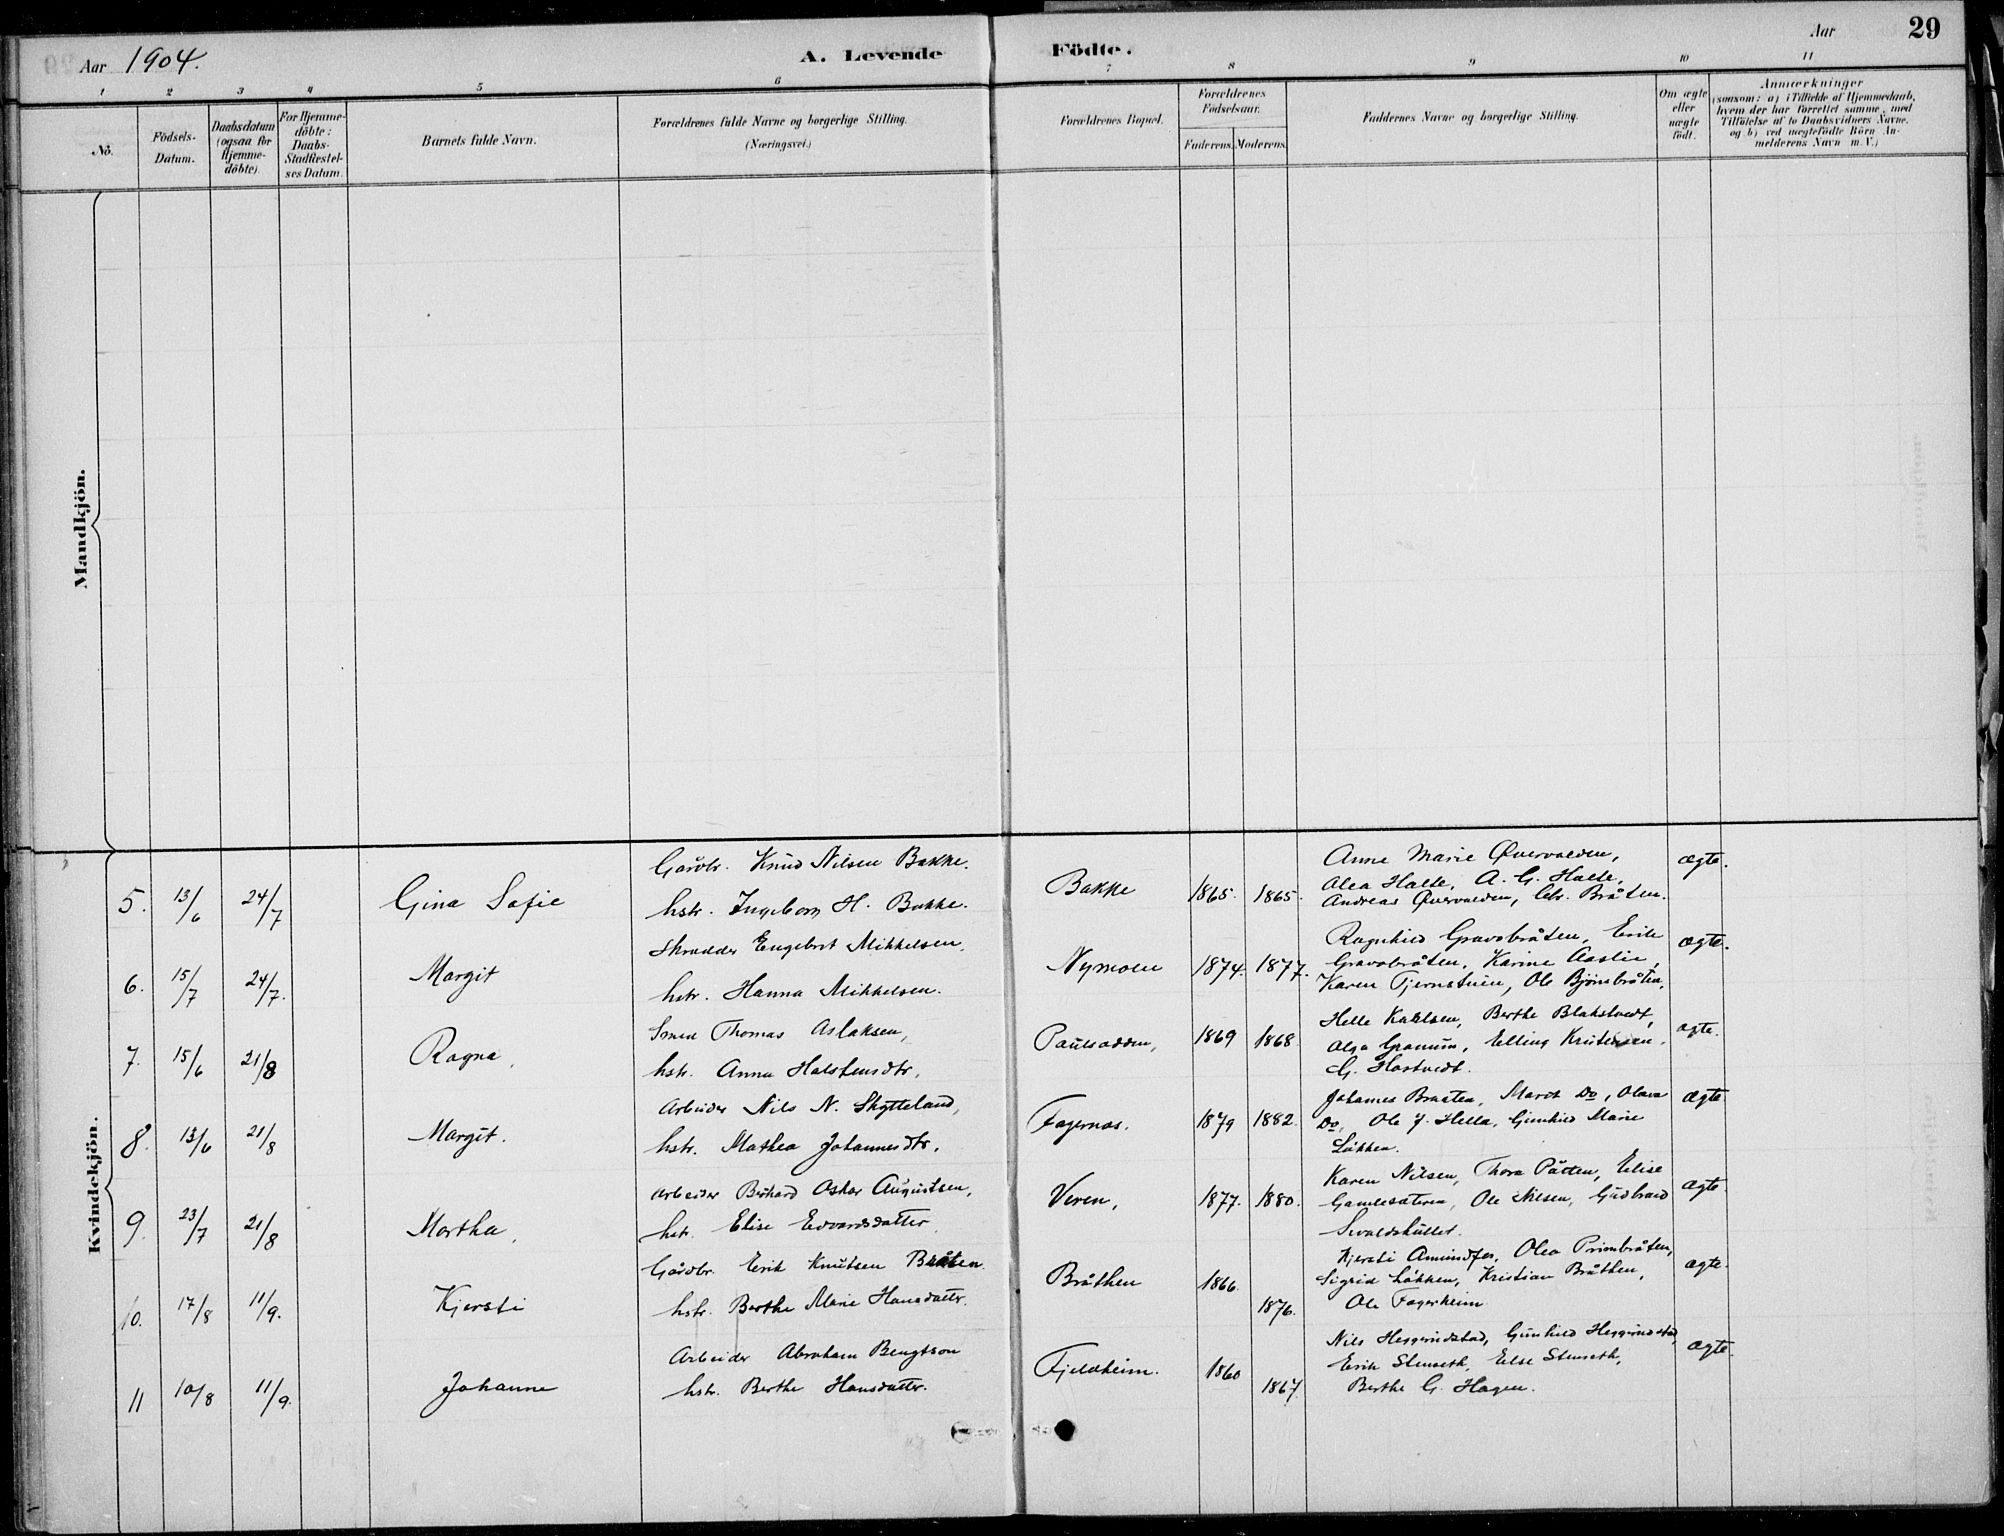 Aar 1904.
A. Levende Födte.
Aar 29
1 2 3 4 5 6 7 8 9 10 11
No.
Födsels-Datum.
Daabsdatum (ogsaa for Hjemme-döbte).
For Hjemme-döbte: Daabs-Stadfæstel-ses Datum.
Barnets fulde Navn.
Forældrenes fulde Navne og borgerlige Stilling.
(Næringsvei.)
Forældrenes Bopæl.
Forældrenes Födselsaar.
Faderens. Moderens.
Faddernes Navne og borgerlige Stilling.
Om ægte eller uægte födt.
Anmærkninger
(saasom: a) i Tilfælde af Hjemmedaab,
hvem der har forrettet samme, med
Tilföielse af to Daabsvidners Navne.
og b) ved uægtefödte Börn An-
melderens Navn m. V.)
Mandkjön.
Kvindekjön.
5. 13/6 24/7 Gina Sofie
Gårdbr. Knud Nilsen Bakke.
hstr. Ingeborg H. Bakke.
Bakke 1865. 1865.
Anne Marie Qvervolden,
Olea Halte, A. G. Halte,
Andreas Qvervolden, Chr. Bråten.
ægte.
6. 15/7 24/7. Margit
Skrædder Engebret Mikkelsen,
hstr. Hanna Mikkelsen.
Nymoen 1874. 1877.
Ragnhild Gravobråten, Erik
Gravobråten, Karine Aaslie,
Karen Tjernstuen, Ole Bjönsbråten.
ægte.
7. 15/6 21/8 Ragna,
Smed Thomas Aslaksen,
hstr. Anna Halstensdtr.
Paulsodden, 1869 1868
Helle Karlsen, Berthe Blakstvedt,
Olga Granum, Elling Kristensen,
G. Hostvedt.
ægte.
8. 13/6 21/8 Margit.
Arbeider Nils N. Skytteland,
hstr. Mathea Johannesdtr.
Fagernæs. 1879 1882.
Johannes Braaten, Marit Do, Olava
Do, Ole J. Hella, Gunhild Marie
Løkken.
ægte
9. 23/7 21/8 Martha,
Arbeider Berhard Oskar Augustsen,
hstr. Elise Edvardsdatter
Veren, 1877. 1880.
Karen Nilsen, Thora Pütten, Elise
Gamlesæteren, Ole Nilsen, Gudbrand
ægte
10. 17/8 11/9. Kjersti
Gårdbr. Erik Knutsen Bråten
hstr. Berthe Marie Hansdatter.
Bråthen 1866. 1876.
Kjersti Amundfos, Olea Primbråten,
Sigrid Løkken, Kristian Bråthen,
Ole Fagerheim
ægte.
11 10/8 11/9. Johanne
Arbeider Abraham Bengtson
hstr. Berthe Hansdatter.
Fjeldheim. 1860 1867
Nils Heggerudstad, Gunhild Heggerudstad,
Erik Stenseth, Else Stenseth,
Berthe G. Hagen.
ægte.